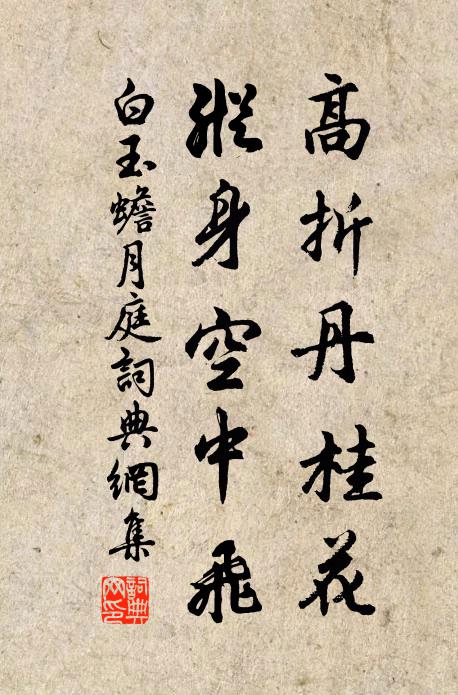 高折丹桂花
縱身空中飛
白玉蟾月庭詞典網集
詞典網印